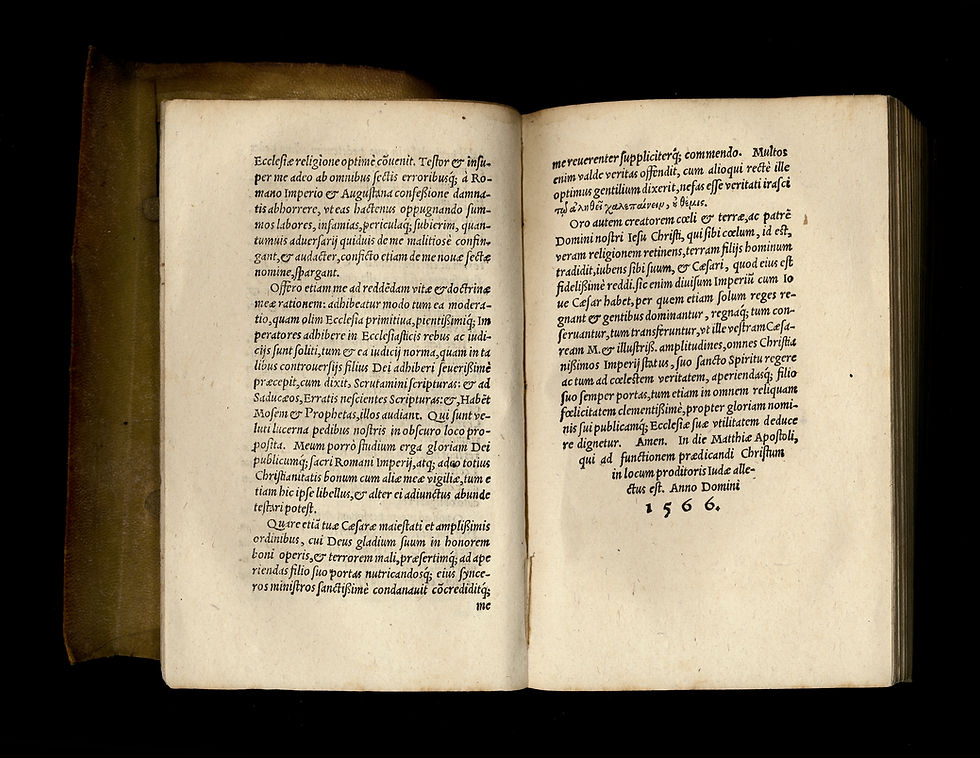 Ecclesiæ religione optimè cõuenit. Testor & insu-
per me adeo ab omnibus sectis erroribusq́; à Ro-
mano Imperio & Augustana confeßione damna-
tis abhorrere, vt eas hactenus oppugnando sum-
mos labores, infamias, periculaq́; subierim, quan-
tumuis aduersarij quiduis de me malitiosè confin-
gant, & audacter, conficto etiam de me nouæ sectæ
nomine, spargant.
Offero etiam me ad reddẽdam vitæ & doctrinæ
meæ rationem: adhibeatur modo tum ea modera-
tio, quam olim Ecclesia primitiua, pientißimiq́; Im
peratores adhibere in Ecclesiasticis rebus ac iudi-
cijs sunt soliti, tum & ea iudicij norma, quam in ta
libus controuersijs filius Dei adhiberi seuerißimè
præcepit, cum dixit, Scrutamini scripturas: & ad
Saducæos, Erratis nescientes Scripturas: &, Habẽt
Mosem & Prophetas, illos audiant. Qui sunt ve-
luti lucerna pedibus nostris in obscuro loco pro-
posita. Meum porrò studium erga gloriam Dei
publicumq́; sacri Romani Imperij, atq́; adeo totius
Christianitatis bonum cum aliæ meæ vigiliæ, tum e
tiam hic ipse libellus, & alter ei adiunctus abunde
testari potest.
Quare etiã tuæ Cæsaræ maiestati et amplißimis
ordinibus, cui Deus gladium suum in honorem
boni operis, & terrorem mali, præsertimq́; ad ape
riendas filio suo portas nutricandosq́; eius synce-
ros ministros sanctißimè condanauit cõcrediditq́;
me
me reuerenter suppliciterq́; commendo. Multos
enim valde veritas offendit, cum alioqui rectè ille
optimus gentilium dixerit, nefas esse veritati irasci
τῷ ἀληθεῖ χαλεπαίνειν, ὀ θέμις.
Oro autem creatorem cœli & terræ, ac patrẽ
Domini nostri Iesu Christi, qui sibi cœlum, id est,
veram religionem retinens, terram filijs hominum
tradidit, iubens sibi suum, & Cæsari, quod eius est
fidelißimè reddi. sic enim diuisum Imperiũ cum Io
ue Cæsar habet, per quem etiam solum reges re-
gnant & gentibus dominantur, regnaq́; tum con-
seruantur, tum transferuntur, vt ille vestram Cæsa-
ream M. & illustriß. amplitudines, omnes Christia
nißimos Imperij status, suo sancto Spiritu regere
ac tum ad cœlestem veritatem, aperiendasq́; filio
suo semper portas, tum etiam in omnem reliquam
fœlicitatem clementißimè, propter gloriam nomi-
nis sui publicamq́; Ecclesiæ suæ vtilitatem deduce
re dignetur. Amen. In die Matthiæ Apostoli,
qui ad functionem prædicandi Christum
in locum proditoris Iudæ alle-
ctus est. Anno Domini
1566.